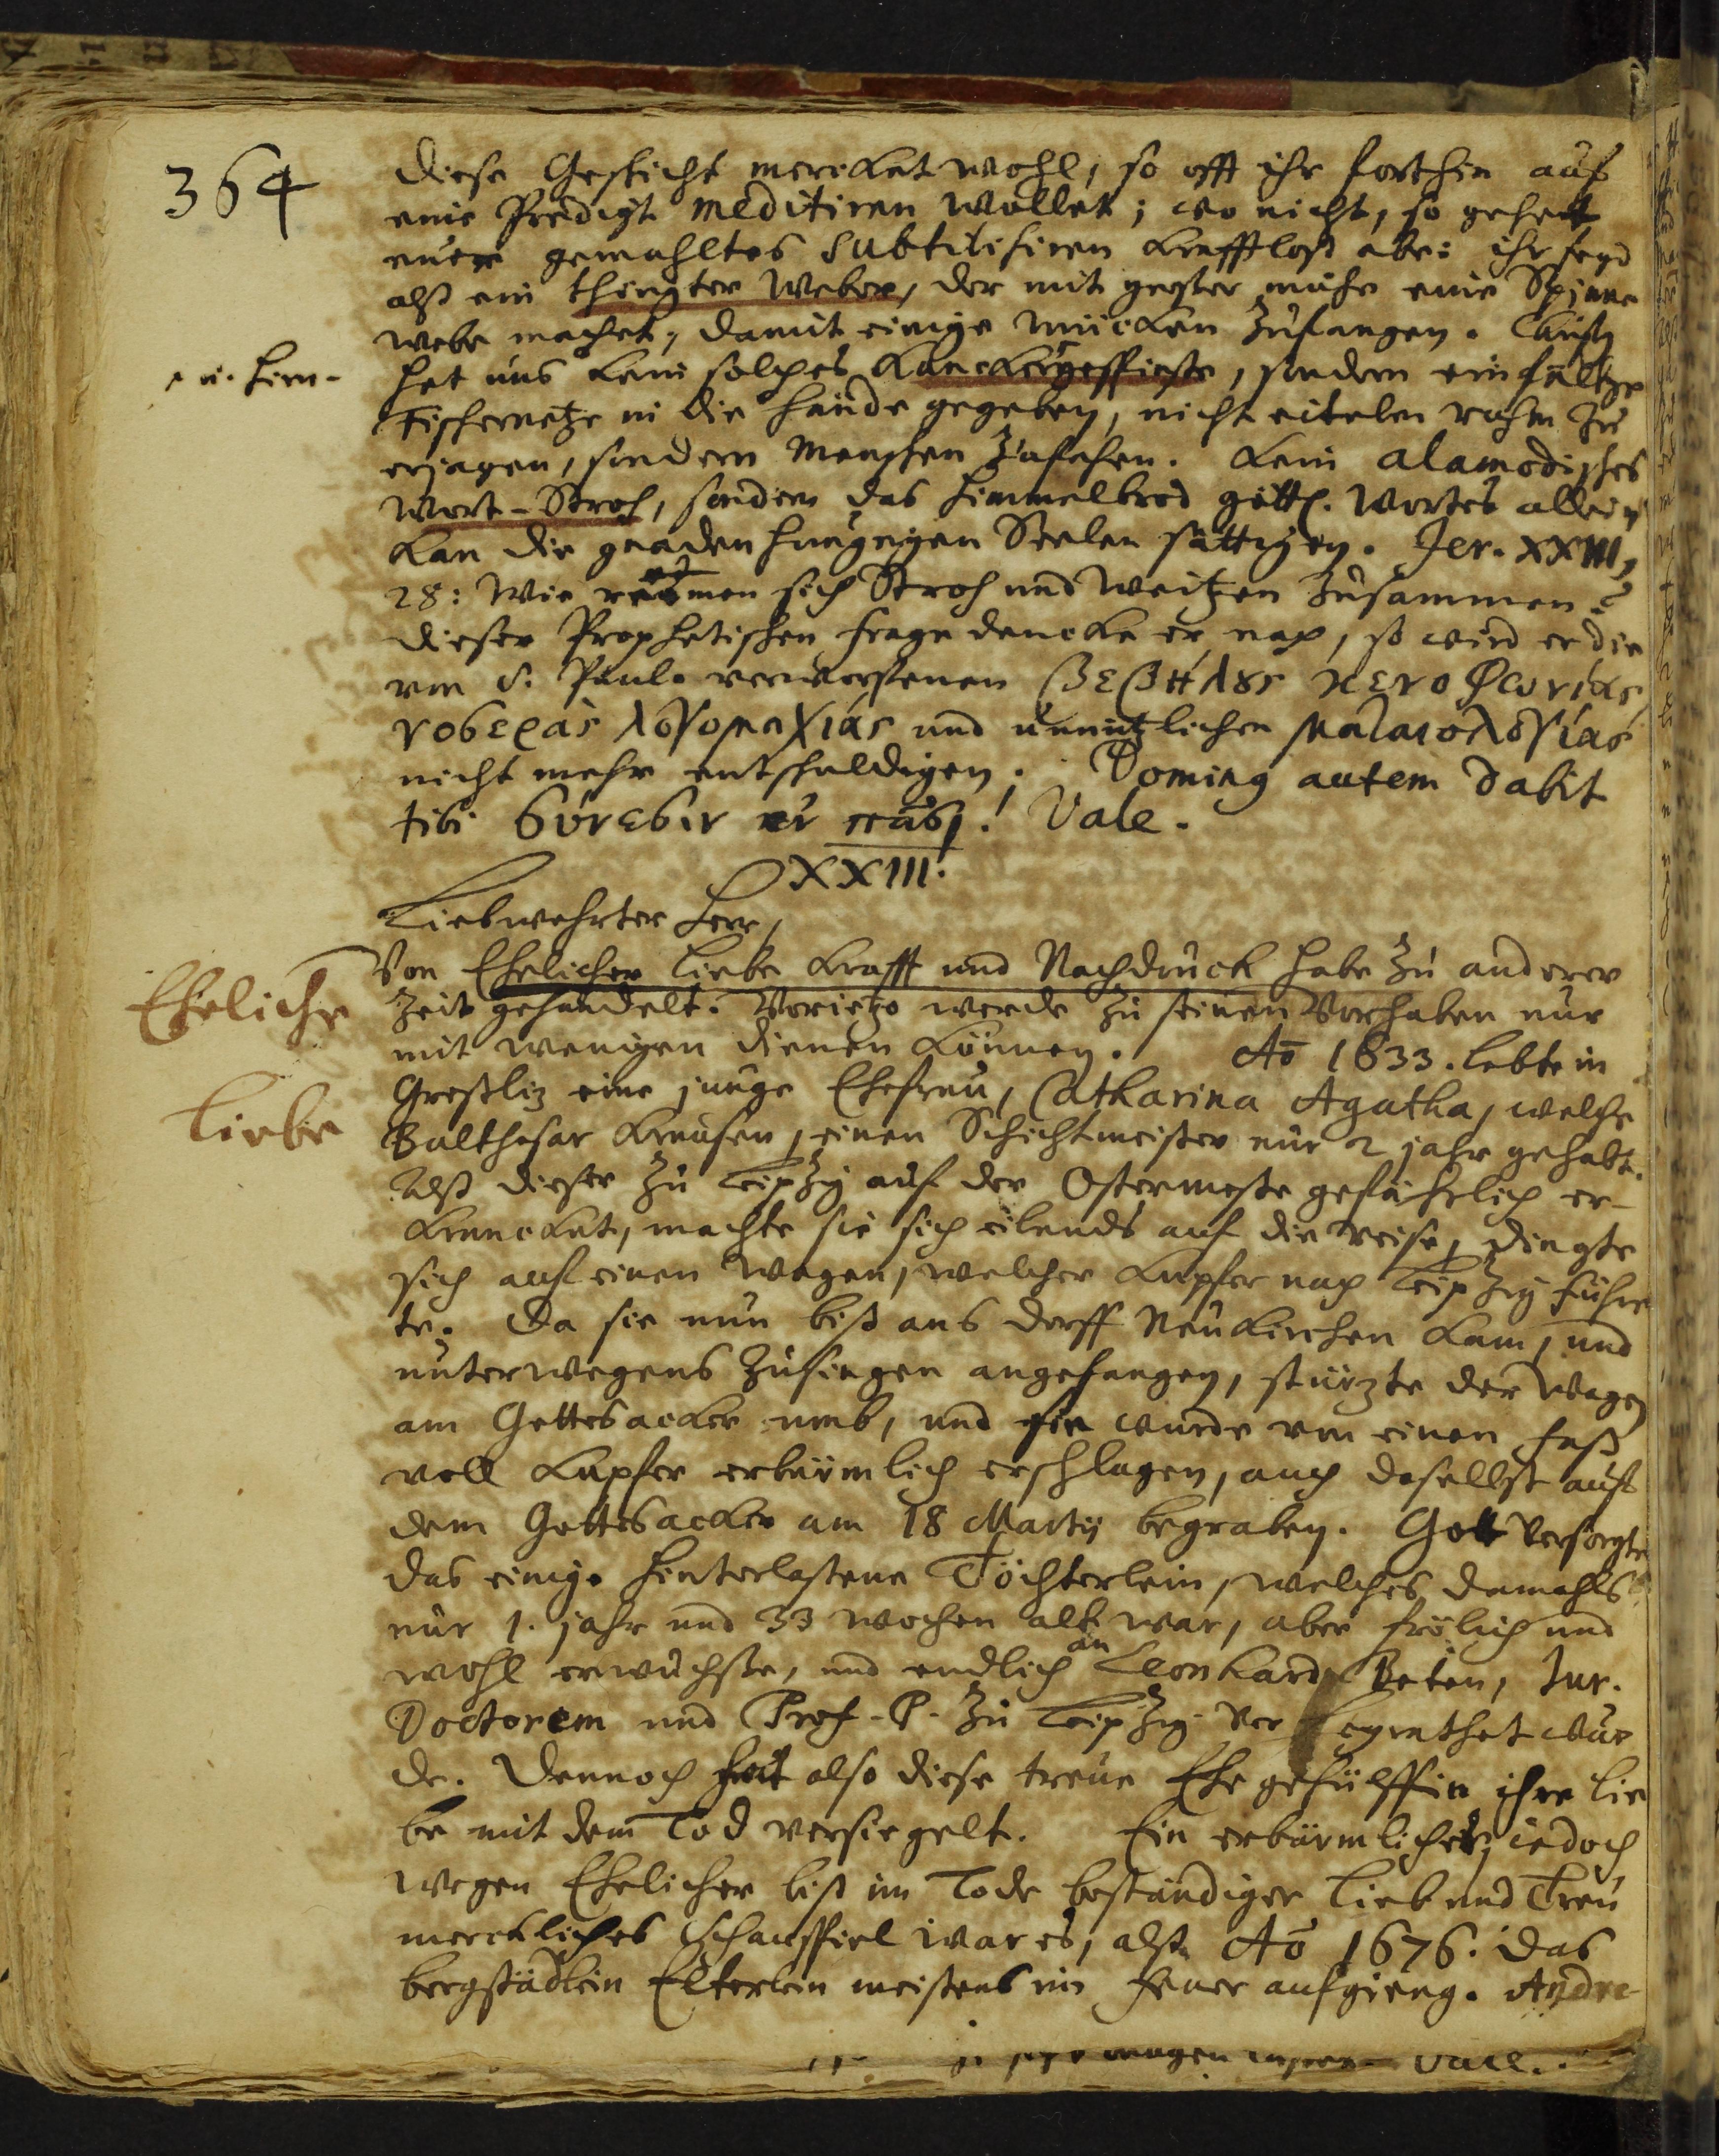 364
diese Geschicht mercket wohl, so offt ihr forthin auf
eine Predigt meditiren wollet; wo nicht, so gehett
euer gemahltes subtilisiren krafftloß abe: ihr seyd
alß ein thörigter Weber, der mit grosser mühe eine Spinne
webe machet, damit einige mücken zufangen. Christus
u. Hirn-
hat uns kein solches Kanckergespinste, sondern einfältge
Fischernetze in die hände gegeben, nicht eitelen ruhm zu
erjagen, sondern Menschen zufahen. kein alamodisches
Wort-Stroh, sondern das himmelbrod göttl. Wortes allein
kan die gnadenhungrigen Seelen sättigen. Jer. XXIII,
28: Wie reumen sich Stroh und Weitzen zusammen?
dieser Prophetischen frage dencke er nach, so wird er die
von S. Paulo verworffenen βεβήλȣς κενοφωνίας
νοσερὰς λογομαχίας und unnützlichen ματαιολογίας
nicht mehr entschuldigen. Dominus autem dabit
tibi σύνεσιν ἐν πᾶσι! Vale.
LXXIII.
Liebwehrter Herr,
Von Ehelicher Liebe Krafft und Nachdruck habe zu anderer
Eheliche
Zeit gehandelt. Vorietzo werde zu seinen Vorhaben nur
mit wenigen dienen können. Ao 1633. lebte in
Liebe
Greßliz eine junge Ehefrau, Catharina Agatha, welche
Balthasar Krausen, einen Schichtmeister nur 2 jahr gehabt.
Alß dieser zu Leipzig auf der Ostermesse gefährlich er-
kranckat, machte sie sich eilends auf die reise, dingte
sich auf einen Wagen, welcher Kupfer nach Leipzig führe
te. Da sie nun biß ans dorff Neukirchen kam, und
unterwegens zusingen angefangen, stürzte der Wagen
am Gottesacker umb, und sie wurde von einen faß
voll Kupfer erbärmlich erschlagen, auch daselbst auf
dem Gottesacker am 18 Martij begraben. Gott versorgte
das einige hinterlassene Töchterlein, welches damahls
nur 1. jahr und 33 wochen alt war, aber frölich und
wohl erwuchsse, und endlich an Leonhard Beten, Jur.
Doctorem und Prof. P. zu Leipzig verheyrathet wur
de. Dennoch hat also diese treue Ehegehülffin ihre Lie
be mit dem Tod versiegelt. Ein erbärmliches, iedoch
wegen Ehelicher biß im Tode beständiger Lieb und Treu
merckliches Schauspiel war es, alß Ao 1676. das
bergstädlein Elterlein meistens im feuer aufgieng. Andre-
Vale.